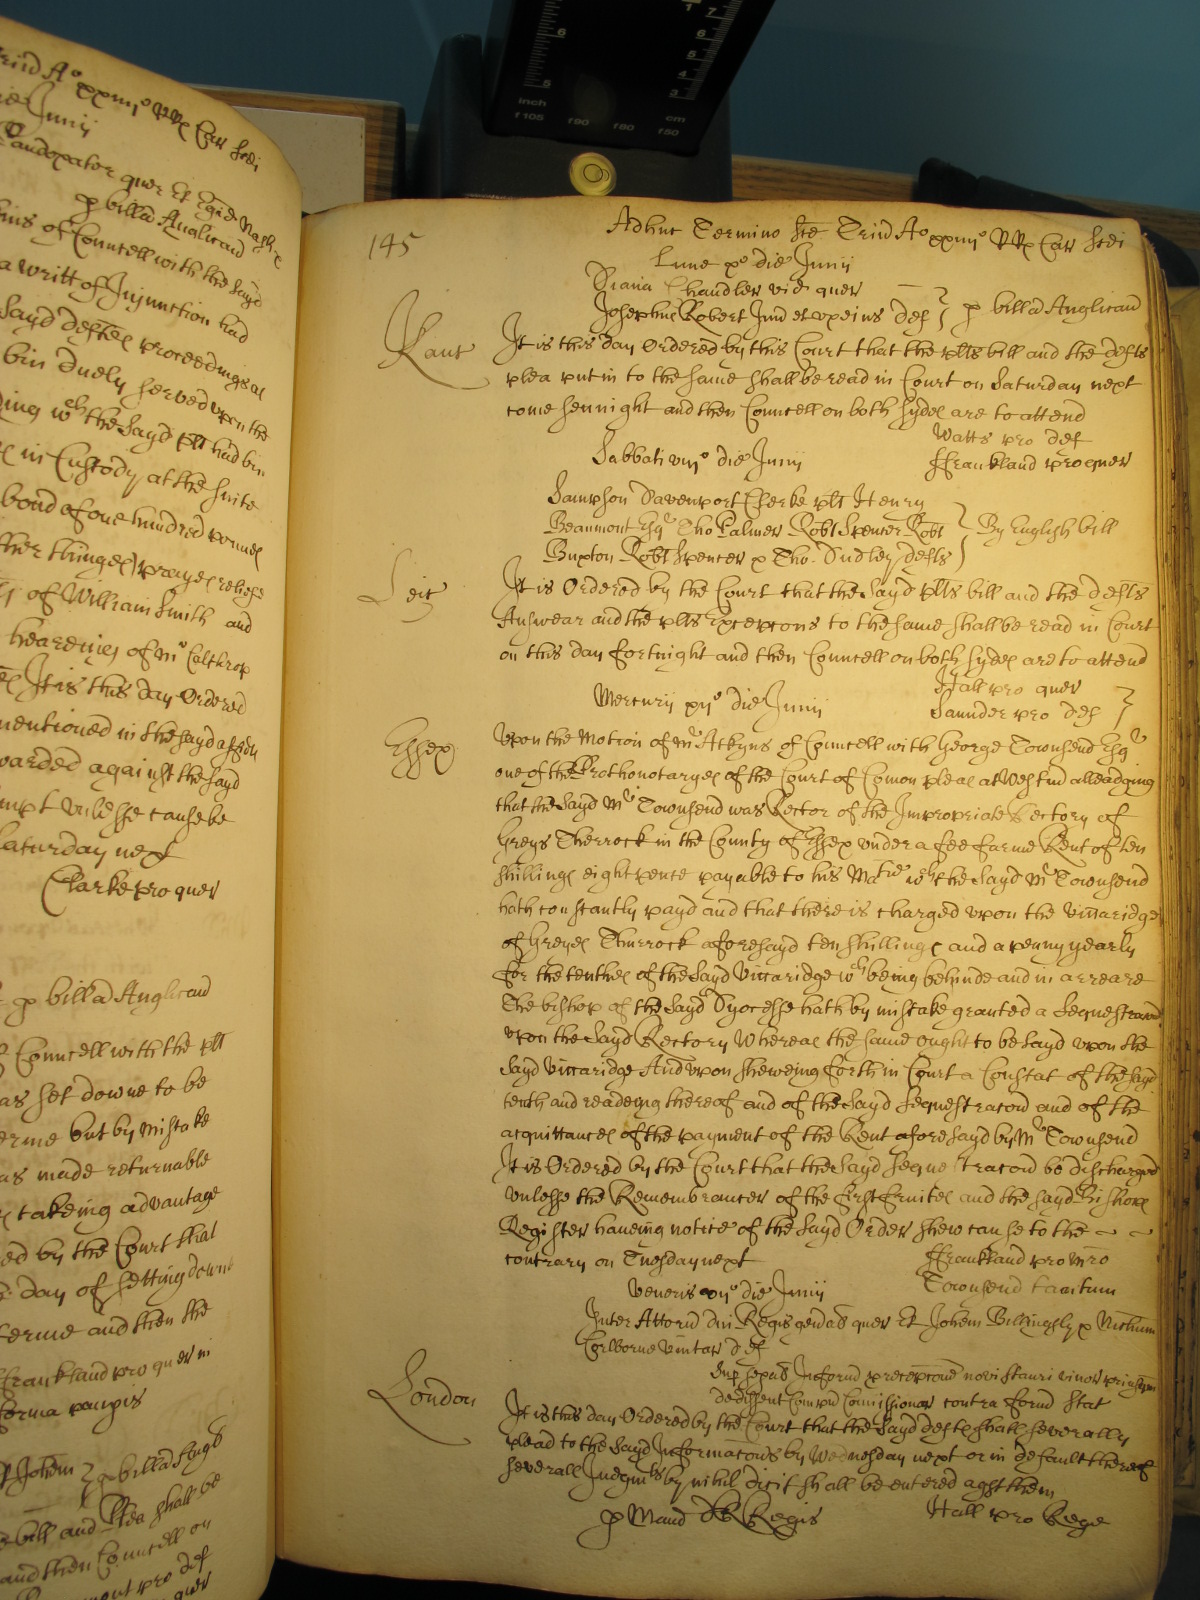 inch
cm
f105 f90 f80 f50
ie Junij
andopater quer Et Egid
p billa Anglicana
ins of Councell with the sayd
a writt of Injunction had
sayd deftes proceedings as
bin duely served upon the
ding wch the sayd plt had bin
in Custody at the suite
bond of one hundred pounds
ther thinges prayes reliefe
of William Smith and
heareing of Mr Calthrop
It is this day Ordered
mentioned in the sayd affidt
warded against the sayd
mpt unlesse cause be
Saturday next
Clarke pro quer
p billa Anglicana
Councell with the plt
as set downe to be
erme but by mistake
as made returnable
takeing advantage
ed by the Court that
day of setting downe
erme and then the
ffrankland pro quer in
forma paupis
Johem p billa Angl
bill and Plea shall be
and then Councell on
pro def
quer
145
Adhuc Termino Ste Trin Ao xxiiijo RRs Car Scdi
Lune po die Junij
Diana Chandler vid quer
Josephus Robert Jun et ux eius def p billa Anglicana
Kanc
It is this day Ordered by this Court that the plts bill and the defts
plea put in to the same shall be read in Court on Saturday next
come sennight and then Councell on both sydes are to attend
Watts pro def
ffrankland pro quer
Sabbati viijo die Junij
Sampson Davenport Clerke plt Henry
Beaumont Esqr Tho Palmer Robt Spencer Robt
Buxton Robt Spencer & Tho. Dudley defts
By English bill
Leic
It is Ordered by the Court that the sayd plts bill and the defts
Answear and the plts Excepcons to the same shall be read in Court
on this day fortnight and then Councell on both sydes are to attend
Hall pro quer
Saunder pro def
Mercurij xijo die Junij
Essex
Upon the Motion of Mr Atkyns of Councell with George Townsend Esqr
one of the Prothonotaryes of the Court of Comon pleas at Westm alleadging
that the sayd Mr Townsend was Rector of the Impropriate Rectory of
Greys Therrock in the County of Essex under a fee farme Rent of ten
shillings eight pence payable to his Matie wch the sayd Mr Townsend
hath constantly payd and that there is charged upon the viccaridge
of Greyes Thurrock aforesayd ten shillings and a penny yearly
for the tenthes of the sayd viccaridge wch being behinde and in arreare
The bishop of the sayd Dyocesse hath by mistake granted a Sequestracon
upon the sayd Rectory Whereas the same ought to be layd upon the
sayd viccaridge And upon sheweing forth in Court a Constat of the sayd
tenth and readeing thereof and of the sayd Sequestracon and of the
acquittances of the payment of the Rent aforesayd by Mr Townsend
It is Ordered by the Court that the sayd Sequestracon be discharged
unlesse the Remembrancer of the first fruites and the sayd Bishops
Register haveing notice of the sayd Order shew cause to the
contrary on Tuesday next
ffrankland pro Mro
Townsend tantum
Veneris xiiijo die Junij
Inter Attorn Dni Regis genal quer Et Johem Billingsly & Nichum
Corborne vintar def
London
Sup sepal Inform p recepcone novi stauri vinor
de diffent Compn Comissionar contra form stat
It is this day Ordered by the Court that the sayd defts shall severally
plead to the sayd Informacons by Wednesday next or in default thereof
severall Judgmts by nihil dicit shall be entered agst them
p Mand Regis
Hall pro Rege